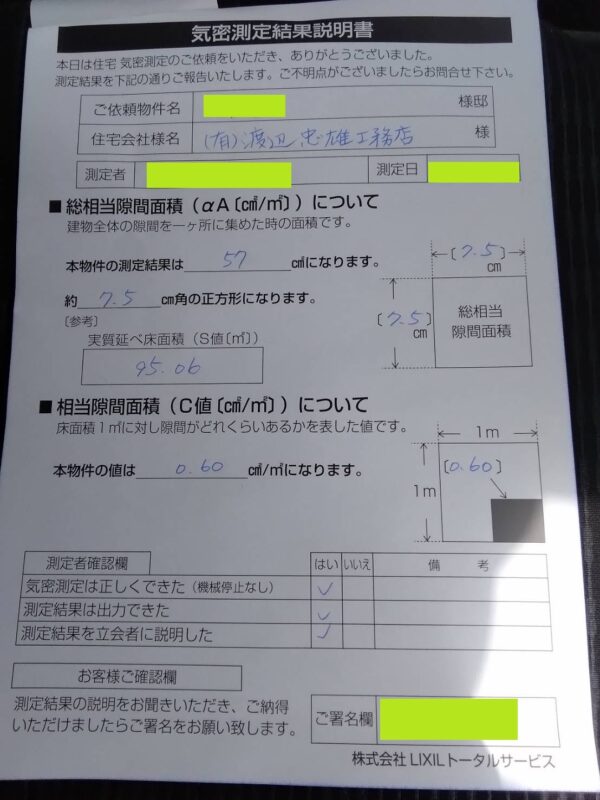 気密測定結果説明書
本日は住宅 気密測定のご依頼をいただき、ありがとうございました。
測定結果を下記の通りご報告いたします。ご不明点がございましたらお問合せ下さい。
ご依頼物件名 様邸
住宅会社様名 (有)渡辺忠雄工務店 様
測定者 測定日
■ 総相当隙間面積（αA〔㎠/㎡〕）について
建物全体の隙間を一ヶ所に集めた時の面積です。
本物件の測定結果は 57 ㎠になります。
約 7.5 cm角の正方形になります。
〔参考〕
実質延べ床面積（S値〔㎡〕）
95.06
〔7.5〕
cm
〔7.5〕
cm
総相当
隙間面積
■ 相当隙間面積（C値〔㎠/㎡〕）について
床面積1㎡に対し隙間がどれくらいあるかを表した値です。
本物件の値は 0.60 ㎠/㎡になります。
1m
1m
〔0.60〕
測定者確認欄 はい いいえ 備考
気密測定は正しくできた（機械停止なし） ✓
測定結果は出力できた ✓
測定結果を立会者に説明した ✓
お客様ご確認欄
測定結果の説明をお聞きいただき、ご納得
いただけましたらご署名をお願い致します。
ご署名欄
株式会社 LIXILトータルサービス